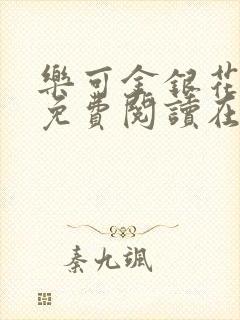 樂可金銀花
免費閱讀在
秦九颯